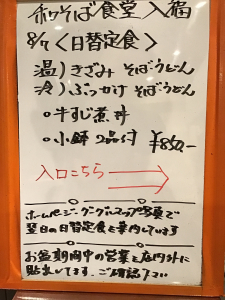 和そば食堂 入福
8/7〈日替定食〉
温）きざみ そばうどん
冷）ぶっかけ そばうどん
○牛すじ煮丼
○小鉢 2品付 ¥850.-
入口こちら
ホームページ・グーグルマップ写真で
翌日の日替定食を案内しています
お盆期間中の営業を店内外に
貼出してます。ご確認下さい